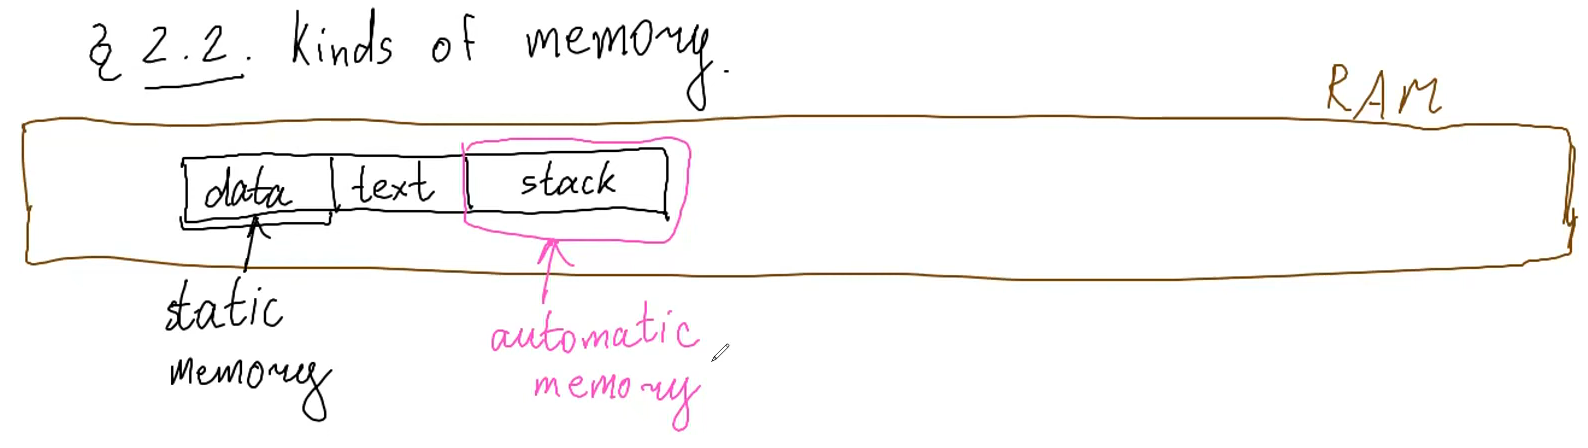 § 2.2. Kinds of memory.
RAM
data text stack
static
memory
automatic
memory